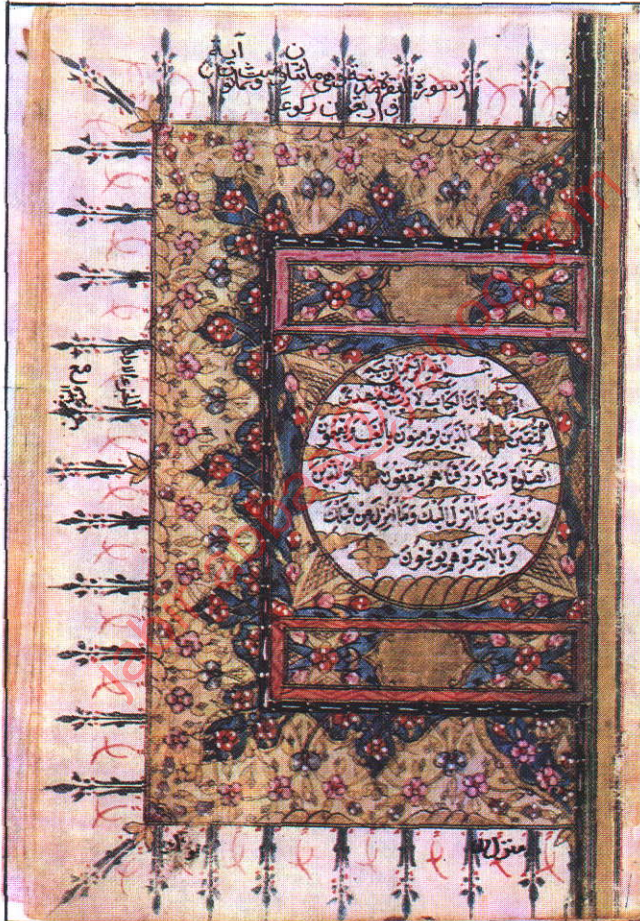 آية
سورة البقرة مدنية وهي مائتان وست وثمانون
واربعين ركوع
بسم الله الرحمن الرحيم
الم ذلك الكتاب لا ريب فيه هدى
للمتقين الذين يؤمنون بالغيب ويقيمون
الصلوة ومما رزقناهم ينفقون والذين
يؤمنون بما انزل اليك وما انزل من قبلك
وبالاخرة هم يوقنون